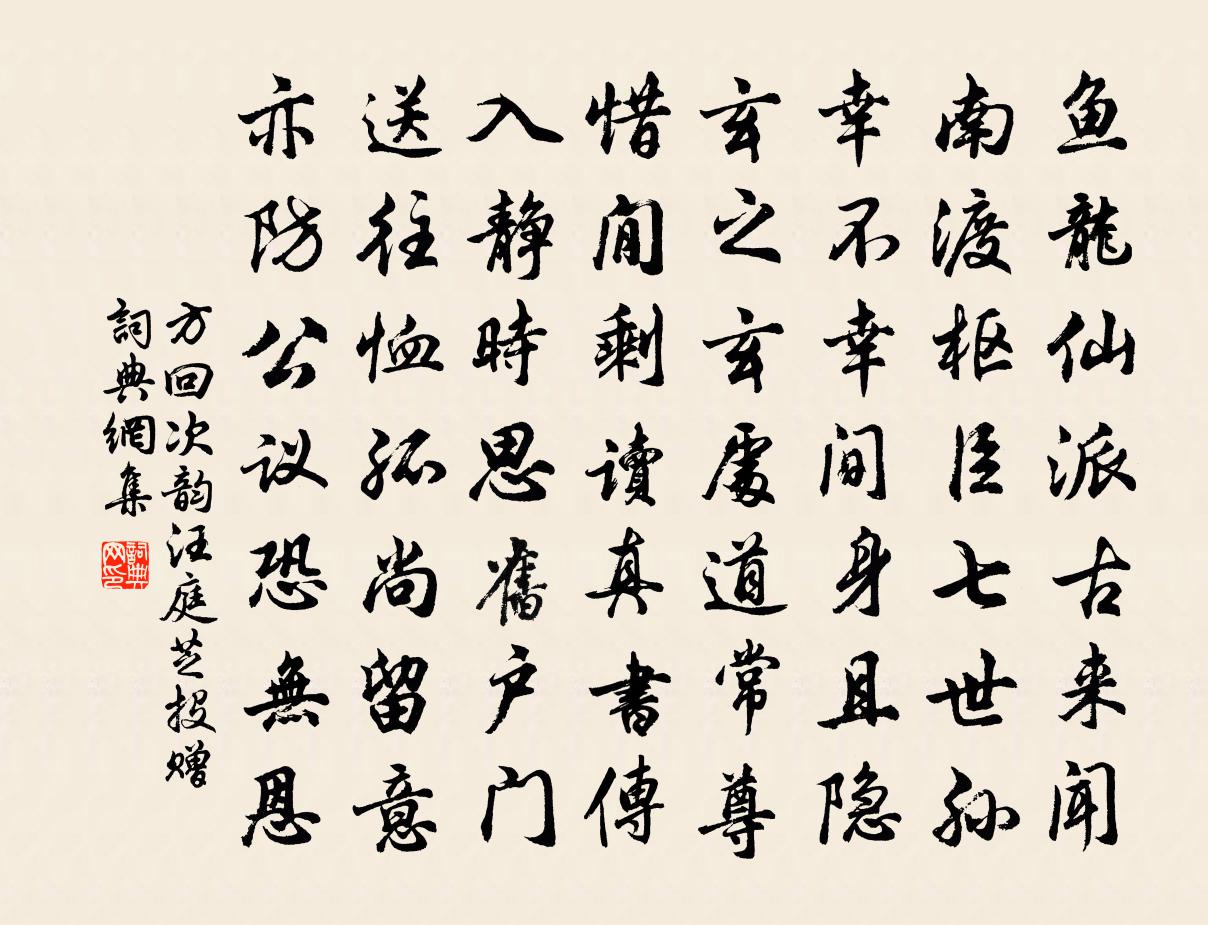 鱼龍仙派古来闻
南渡枢臣七世孙
幸不幸间身且隐
玄之玄處道常尊
惜闲剩讀真書傳
入静時思舊户门
送往恤孤尚留意
亦防公议恐無恩
方回次韵汪庭芝投赠
詞典網集
詞典网印